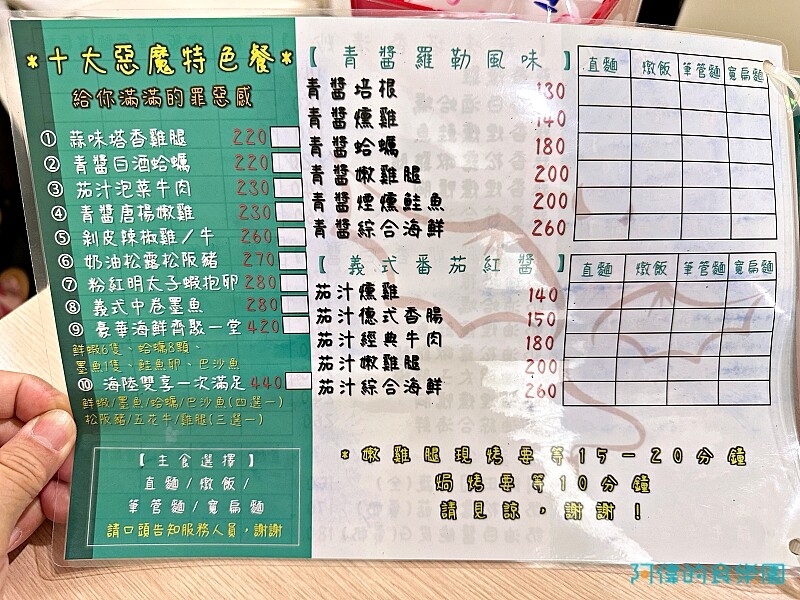 *十大惡魔特色餐*
給你滿滿的罪惡感
① 蒜味塔香雞腿 220
② 青醬白酒蛤蠣 220
③ 茄汁泡菜牛肉 230
④ 青醬唐揚嫩雞 230
⑤ 剝皮辣椒雞/牛 260
⑥ 奶油松露松阪豬 270
⑦ 粉紅明太子蝦抱卵 280
⑧ 義式中卷墨魚 280
⑨ 豪華海鮮齊聚一堂 420
鮮蝦6隻、蛤蠣8顆、
墨魚1隻、鮭魚卵、巴沙魚
⑩ 海陸雙享一次滿足 440
鮮蝦/墨魚/蛤蠣/巴沙魚(四選一)
松阪豬/五花牛/雞腿(三選一)
【主食選擇】
直麵/燉飯/
筆管麵/寬扁麵
請口頭告知服務人員,謝謝
【青醬羅勒風味】
直麵 燉飯 筆管麵 寬扁麵
青醬培根 130
青醬燻雞 140
青醬蛤蠣 180
青醬嫩雞腿 200
青醬煙燻鮭魚 200
青醬綜合海鮮 260
【義式番茄紅醬】
直麵 燉飯 筆管麵 寬扁麵
茄汁燻雞 140
茄汁德式香腸 150
茄汁經典牛肉 180
茄汁嫩雞腿 200
茄汁綜合海鮮 260
*嫩雞腿現烤要等15-20分鐘
焗烤要等10分鐘
請見諒,謝謝!
阿偉的食樂園